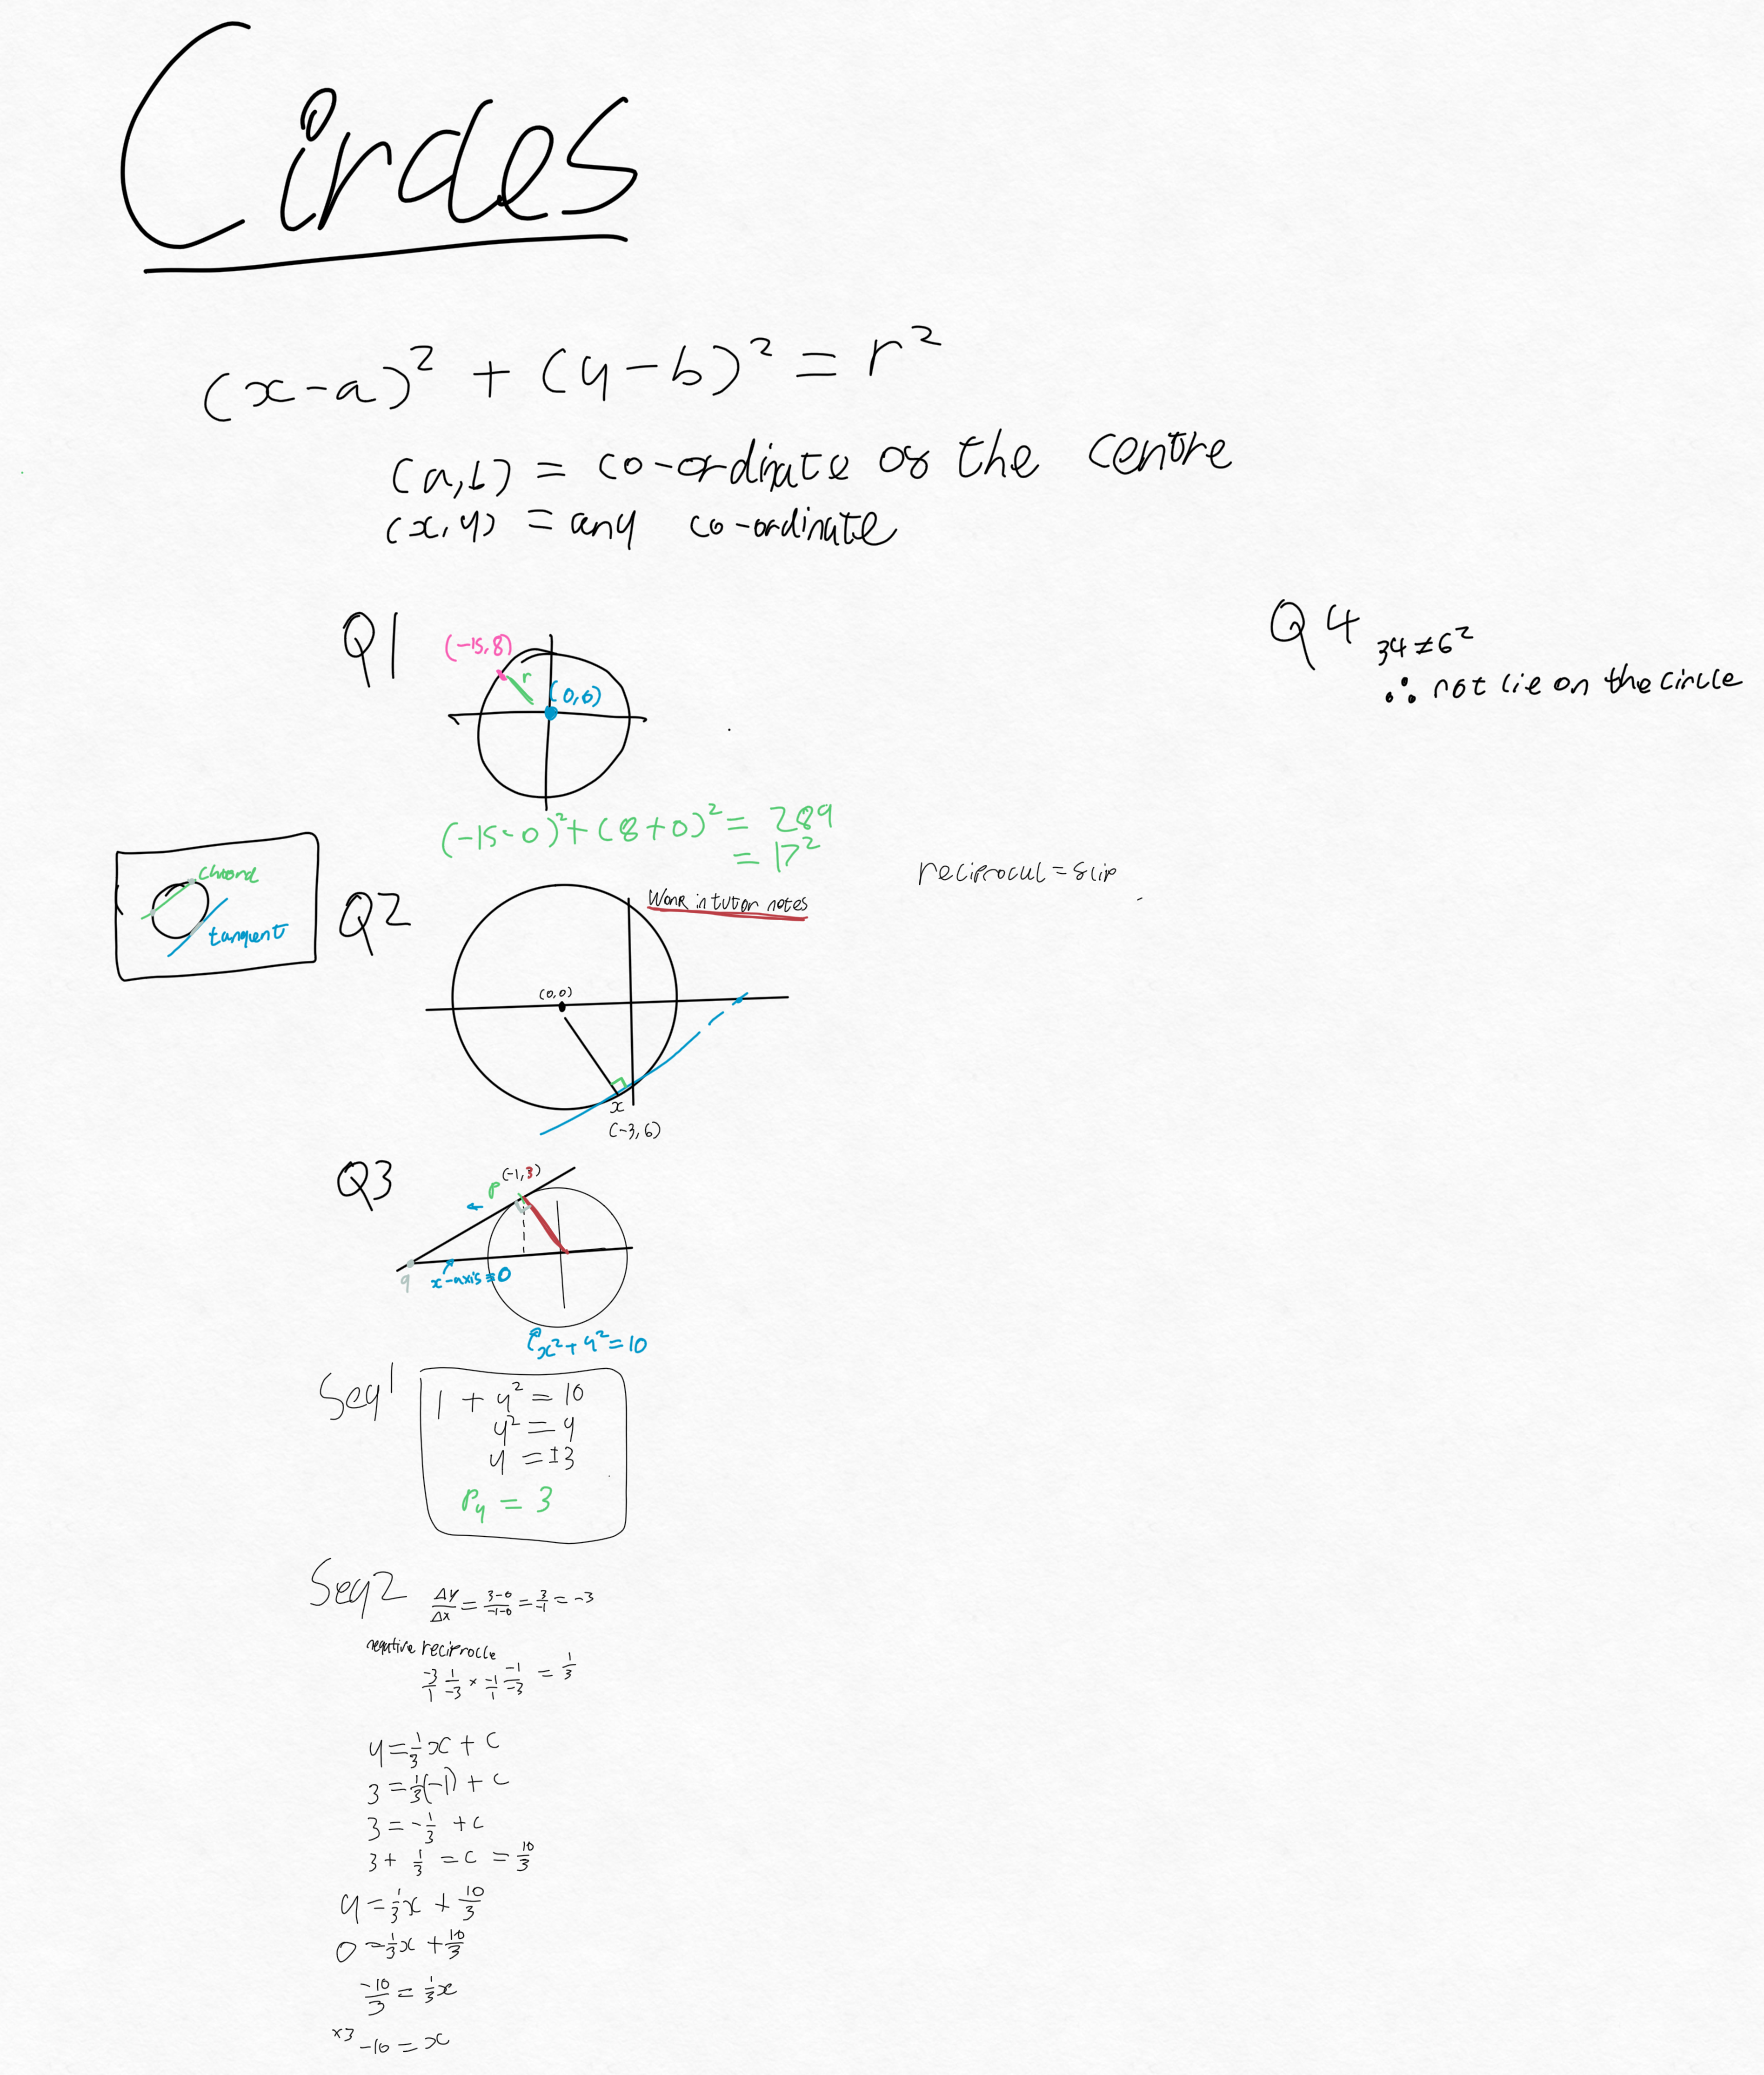 Circles
(x-a)² + (y-b)² = r²
(a,b) = co-ordinate of the centre
(x,y) = any co-ordinate
Q1
(-15,8)
r
(0,0)
(-15-0)²+(8+0)² = 289
= 17²
Q4
34≠6²
∴ not lie on the circle
chord
tangent
reciprocul = flip
Q2
Work in tutor notes
(0,0)
x
(-3,6)
Q3
(-1,3)
P
q
x-axis=0
x²+y²=10
Seq1
1 + y² = 10
y² = 9
y = ±3
Py = 3
Seq2
Δy/Δx = 3-0/-1-0 = 3/-1 = -3
negative reciprocle
-3/1 1/-3 × -1/1 -1/-3 = 1/3
y=1/3x + c
3 = 1/3(-1) + c
3 = -1/3 + c
3 + 1/3 = c = 10/3
y = 1/3x + 10/3
0 = 1/3x + 10/3
-10/3 = 1/3x
×3 -10 = x